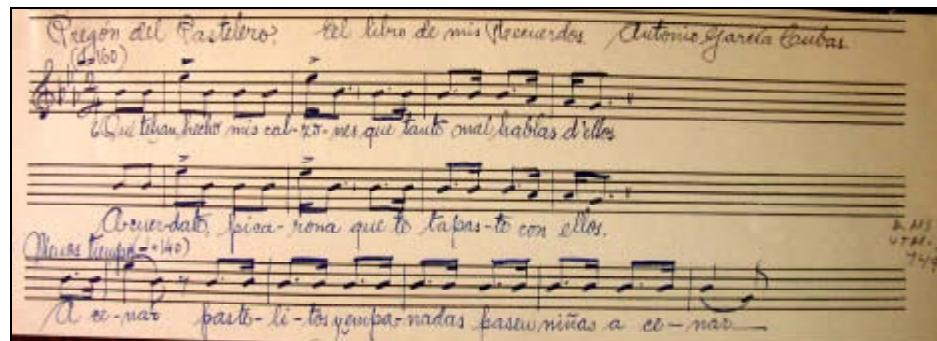 Pregón del Pastelero. El libro de mis Recuerdos. Antonio García Cubas.
(♩=160)
¿Qué te han hecho mis cal-zo-nes que tanto mal hablas d'ellos
Acuer-date, pica-rona que te tapas-te con ellos.
Menos tiempo (♩=140)
A ce-nar paste-li-tos y empa-nadas pasen niñas a ce-nar